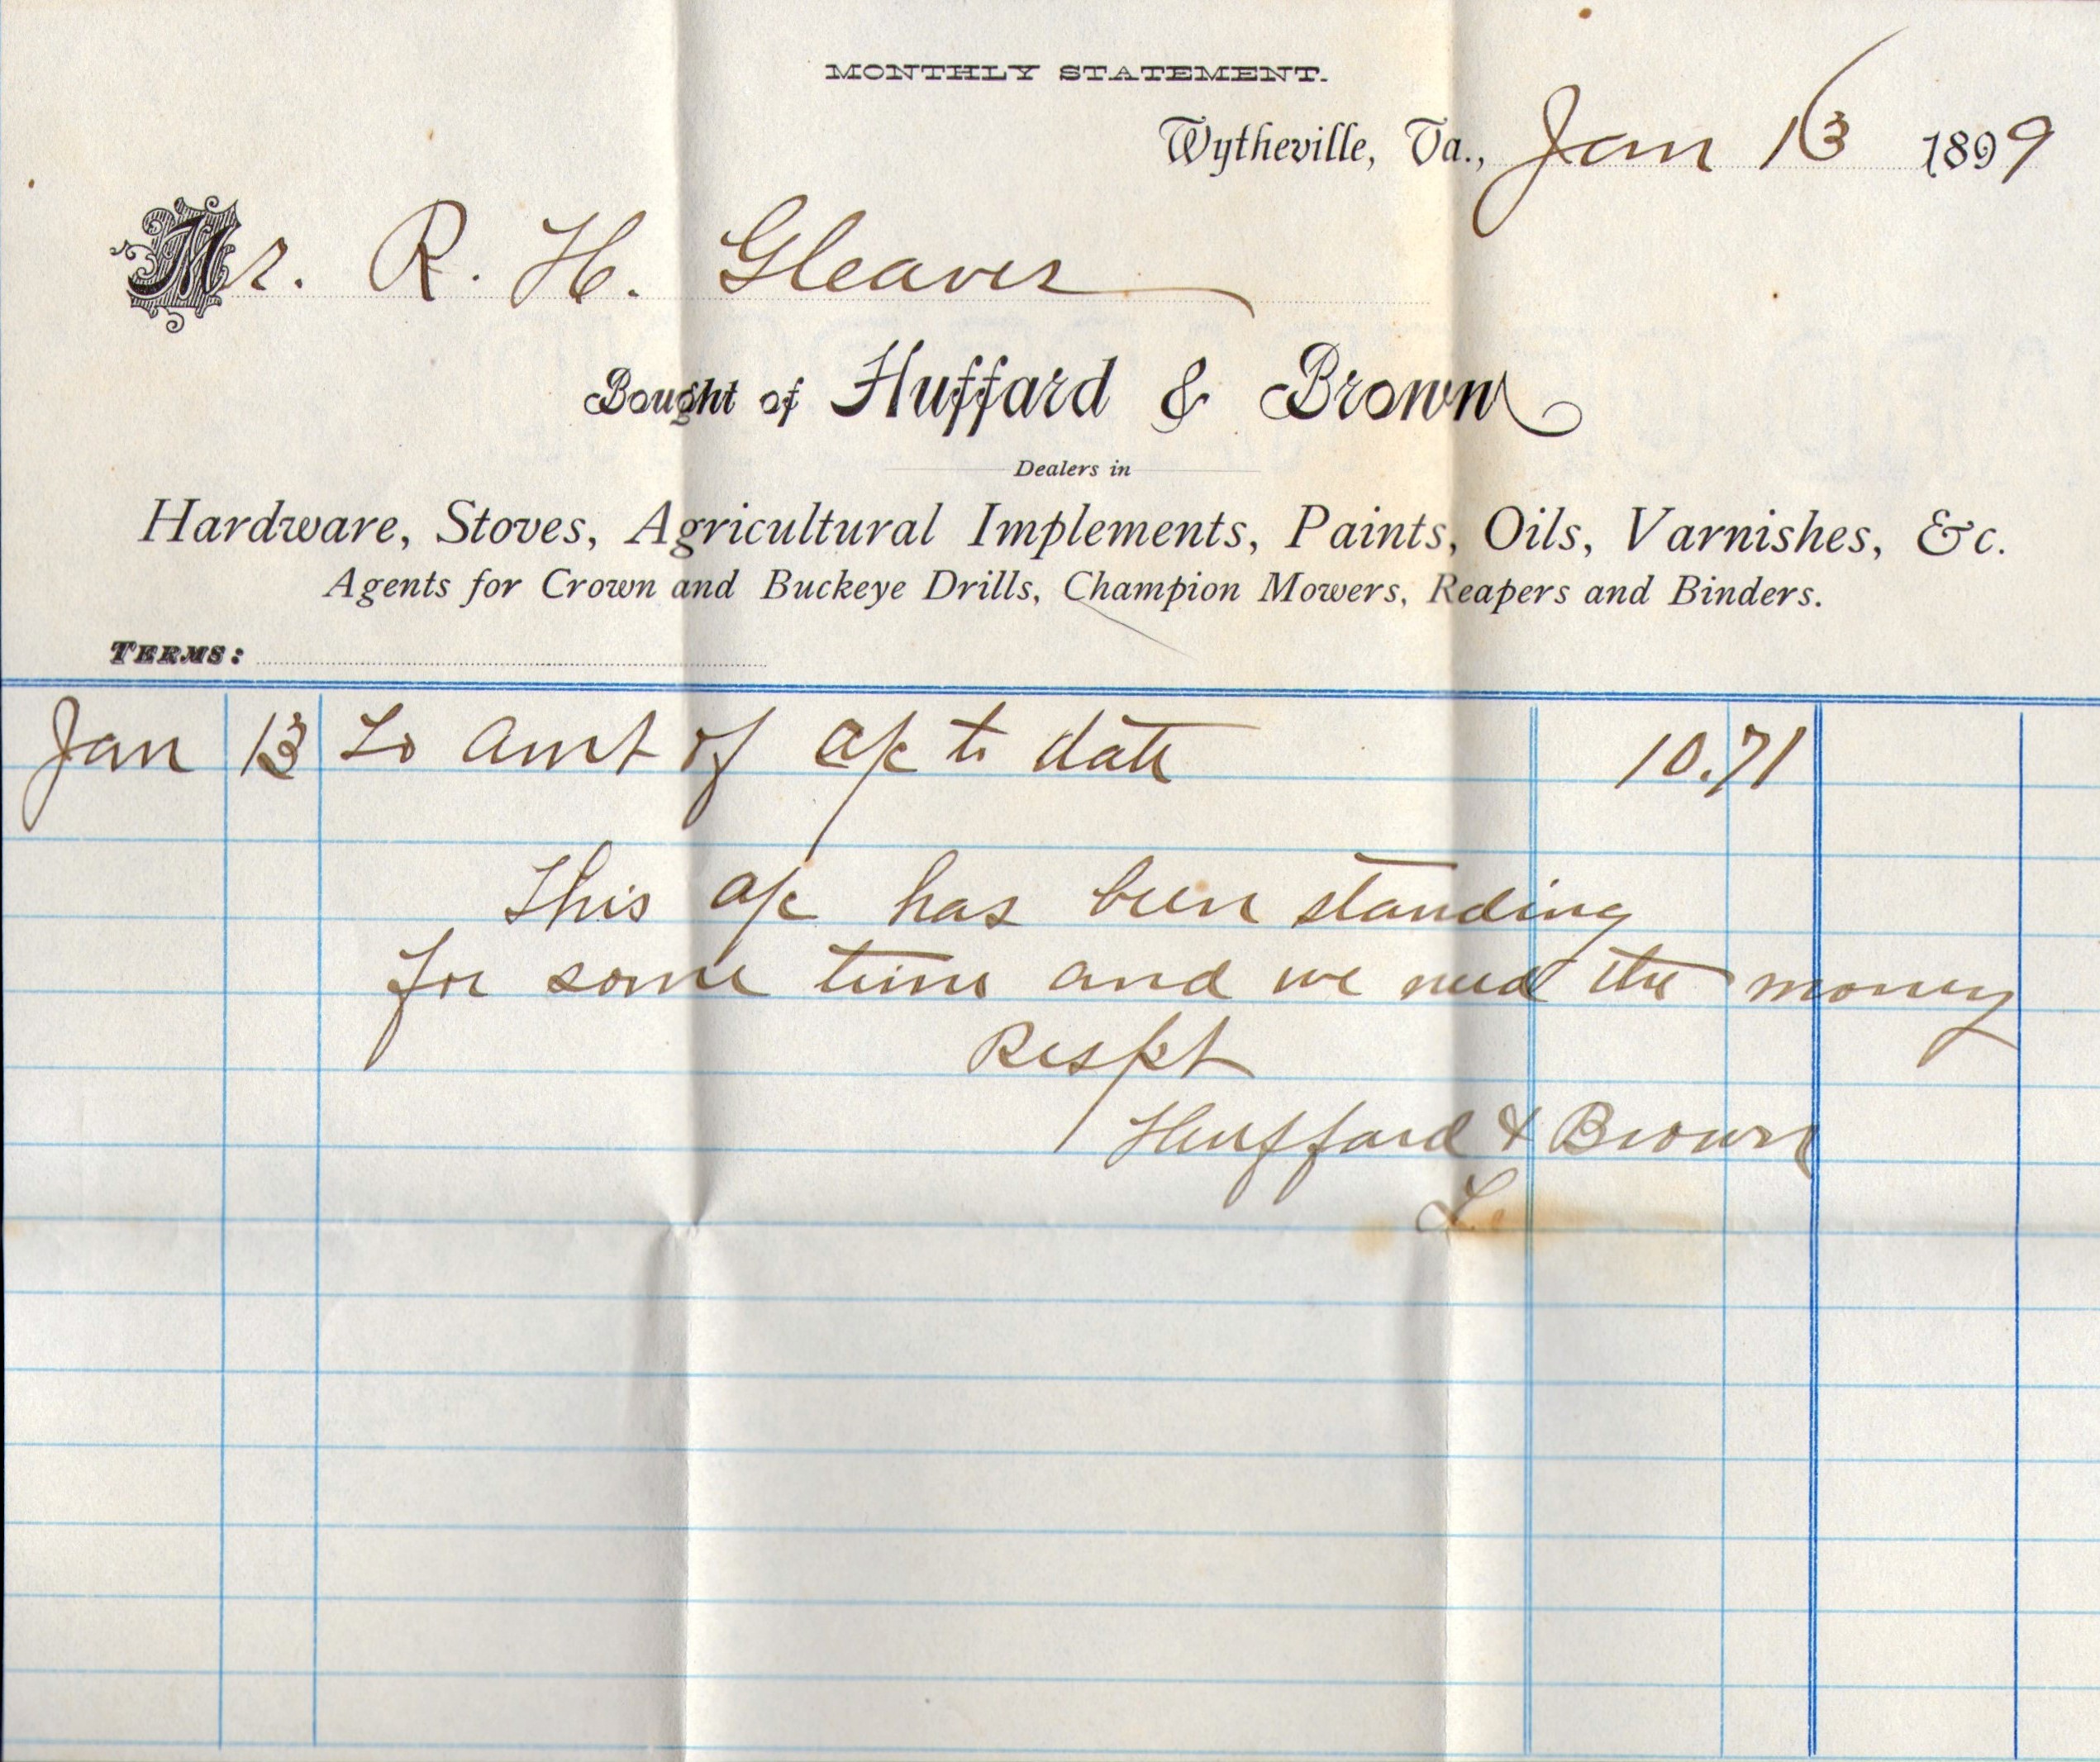 MONTHLY STATEMENT.
Wytheville, Va., Jan 13 1899
Mr. R. H. Gleaves
Bought of Huffard & Brown
Dealers in
Hardware, Stoves, Agricultural Implements, Paints, Oils, Varnishes, &c.
Agents for Crown and Buckeye Drills, Champion Mowers, Reapers and Binders.
TERMS:
Jan 13 To Amt of a/c to date 10.71
This a/c has been standing
for some time and we need the money
Respt
Huffard & Brown
L